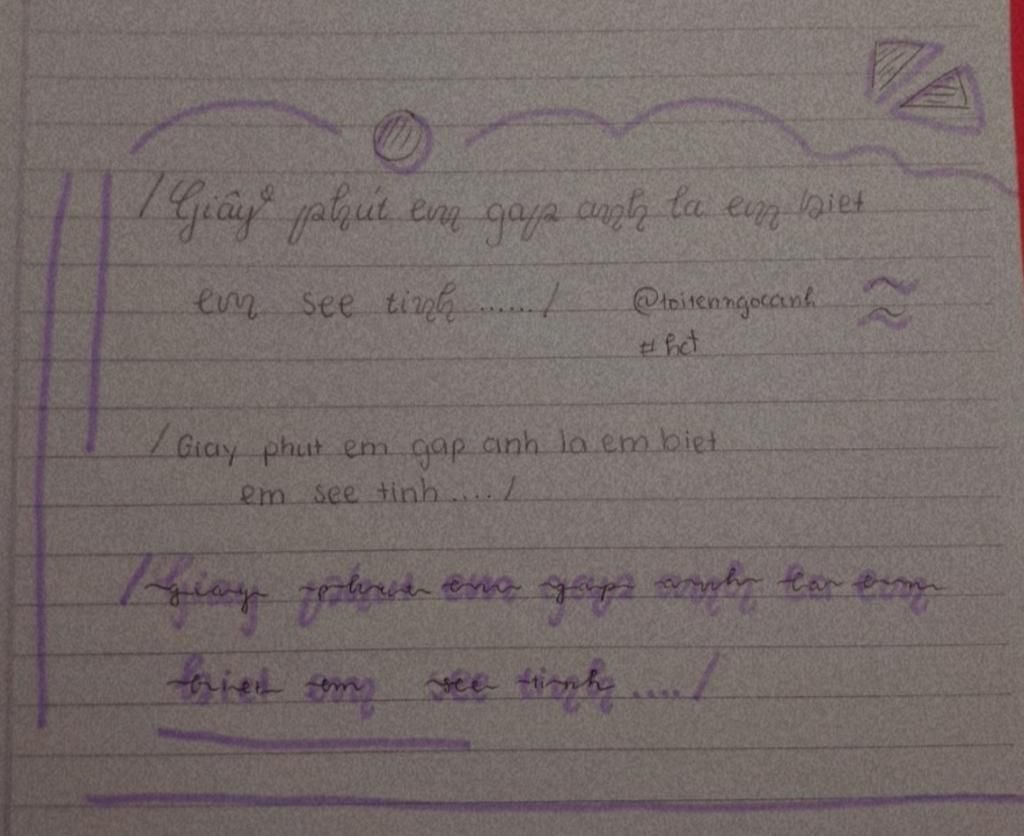 /Giây phút em gap anh la em biet
em see tinh ....../
@toitenngocanh
#hct
/Giay phut em gap anh la em biet
em see tinh ..../
/giay phut em gap anh la em
biet em see tinh ..../